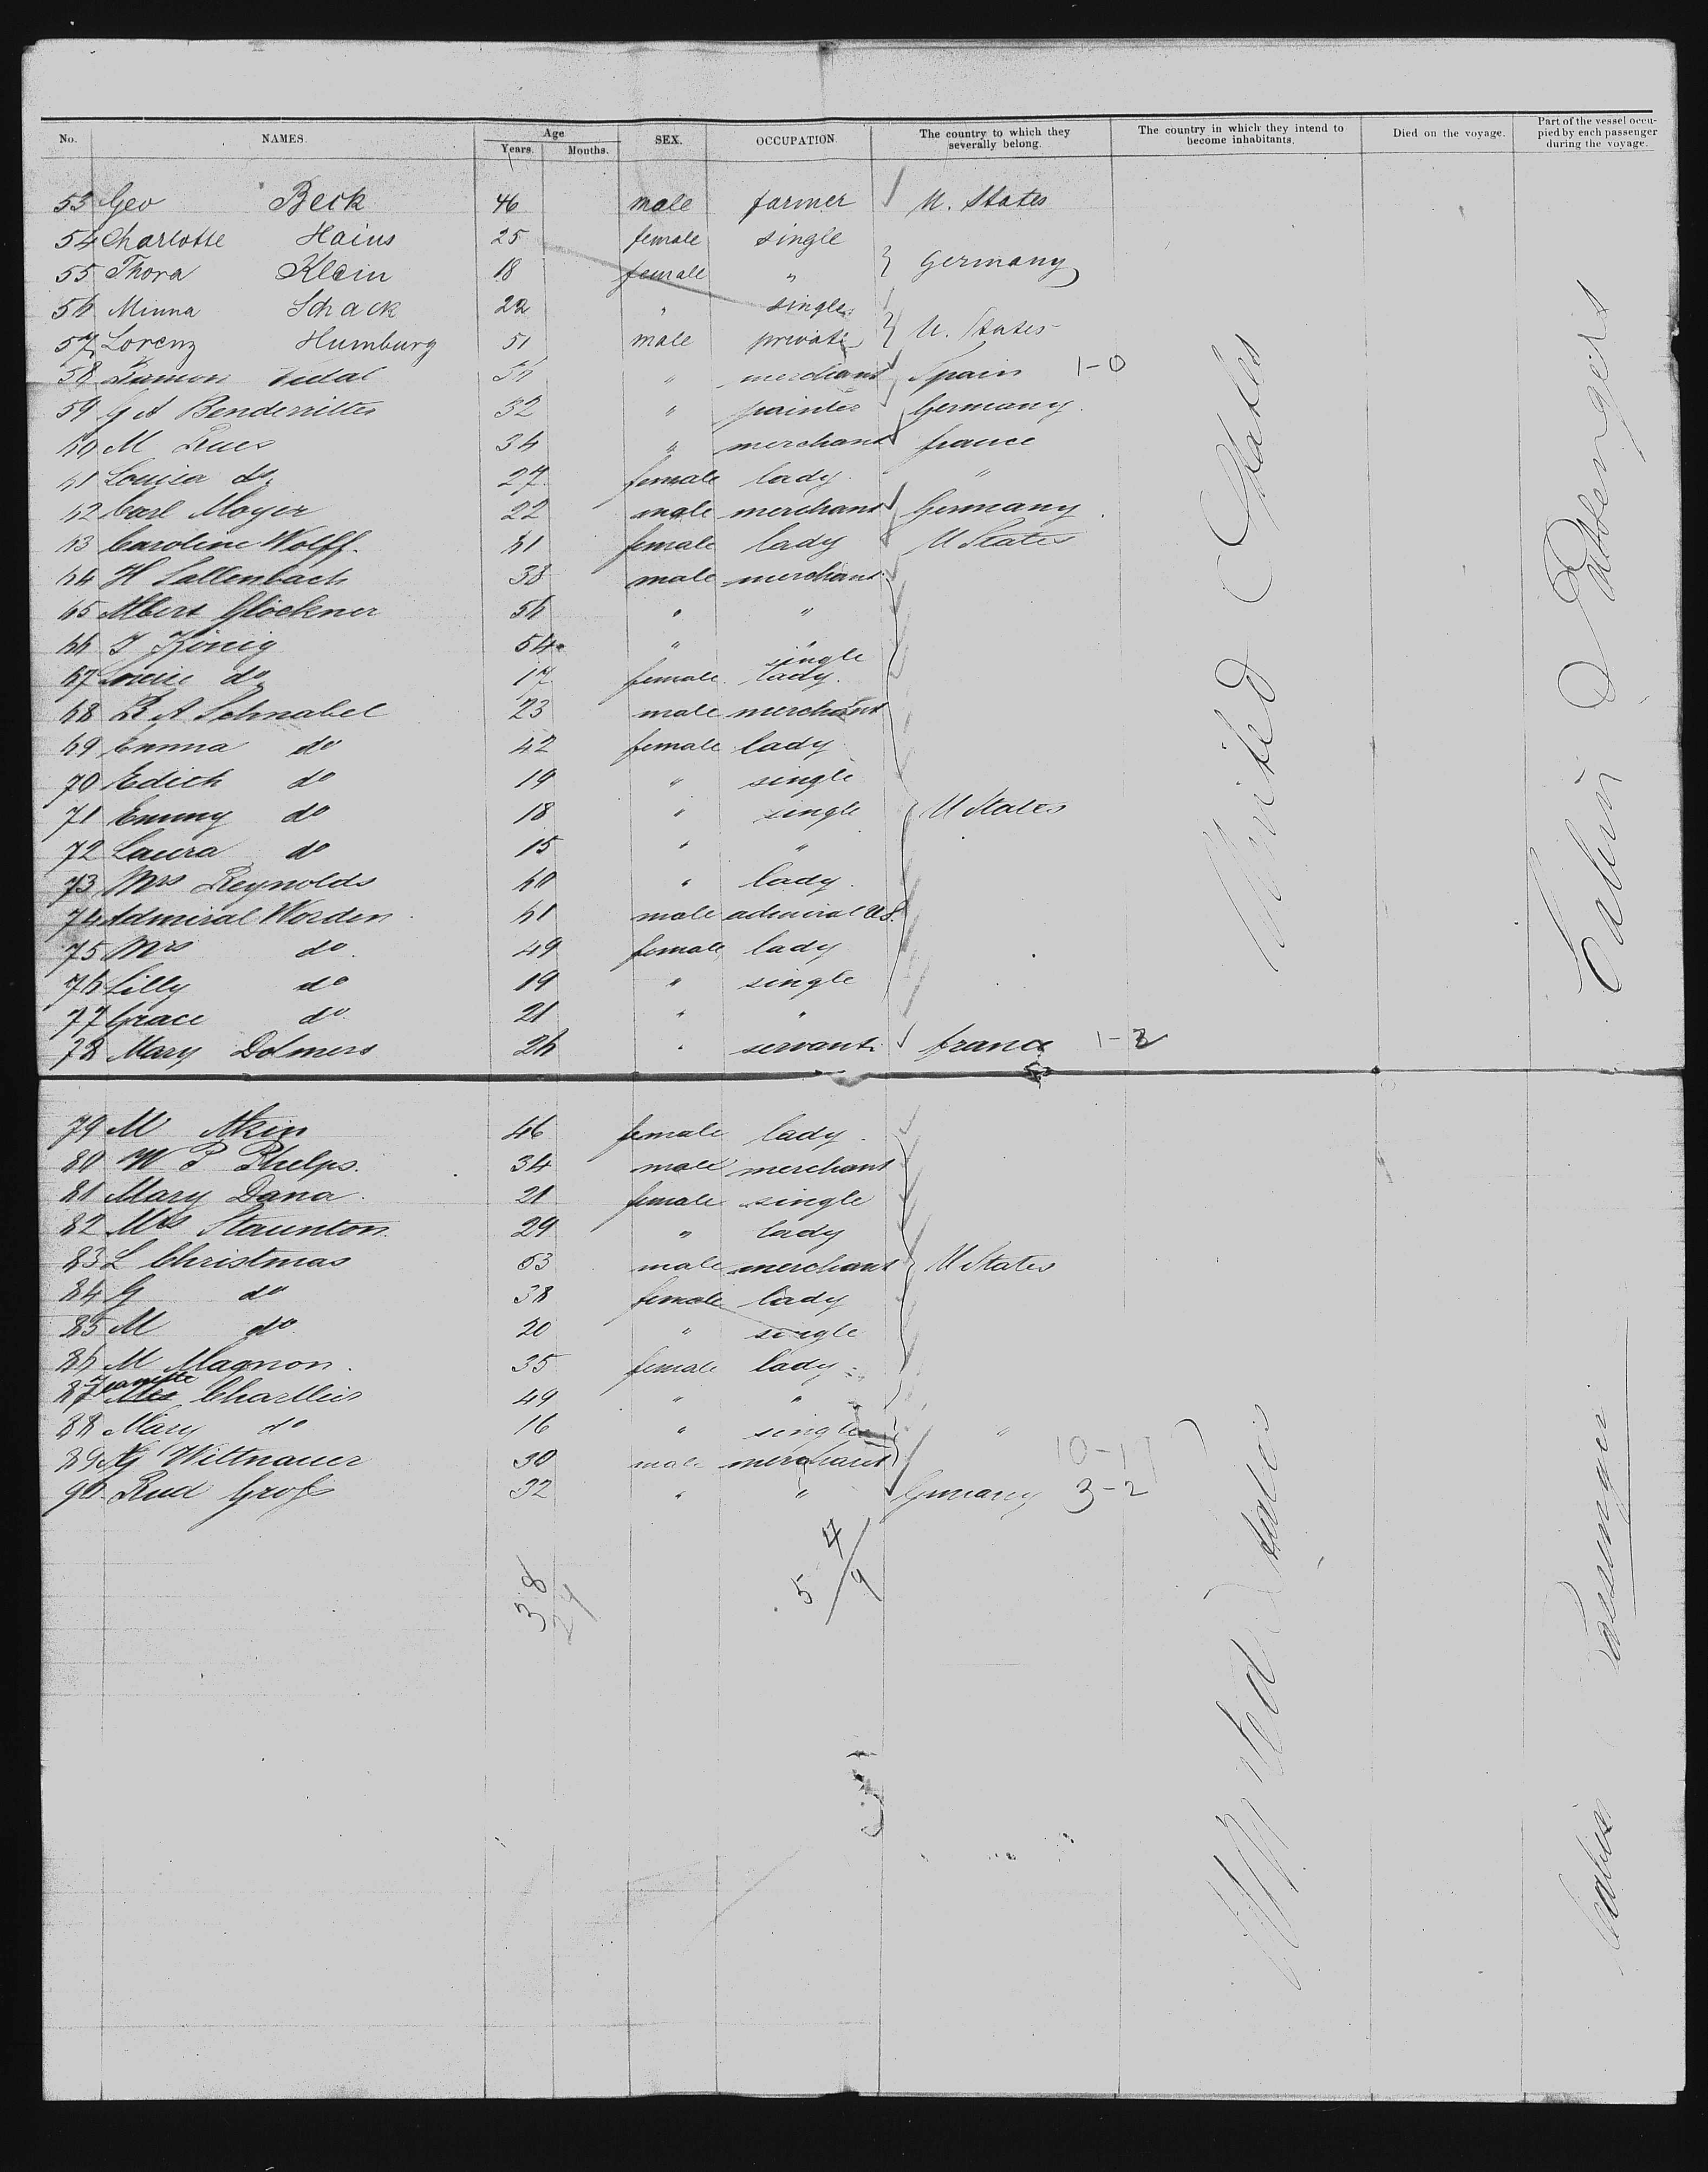 No. NAMES. Age Years. Months. SEX. OCCUPATION. The country to which they severally belong. The country in which they intend to become inhabitants. Died on the voyage. Part of the vessel occupied by each passenger during the voyage.
53 Geo Beck 46 male farmer U. States
54 Charlotte Hains 25 female single
55 Thora Klein 18 female " Germany
56 Minna Schack 22 " single
57 Lorenz Humburg 51 male private U. States
58 Ramon Vidal " merchant Spain 1-0
59 G A Benderitter 32 " painter Germany
60 M 34 " merchant france
61 Louisa do 27 female lady "
62 Carl Moyer 22 male merchant Germany
63 Caroline Wolff. 61 female lady U States
64 H Sallenbach 38 male merchant
65 Albert Glöckner 56 " "
66 J König 54 " "
67 Louise do 17 female single lady
68 R A Schnabel 23 male merchant
69 Emma do 42 female lady
70 Edith do 19 " single
71 Emmy do 18 " single U States
72 Laura do 15 " "
73 Mrs Reynolds 60 " lady
74 Admiral Worden 61 male admiral U.S.
75 Mrs do 49 female lady
76 Lilly do 19 " single
77 Grace do 21 " "
78 Mary Dolmers 26 " servant france 1-2
United States
Cabin Passengers
79 M Akin 46 female lady
80 W P Phelps. 34 male merchant
81 Mary Dana 21 female single
82 Mrs Staunton 29 " lady
83 L Christmas 63 male merchant U States
84 G do 38 female lady
85 M do 20 " single
86 M Magnon 35 female lady
87 49 " "
88 Mary do 16 " single "
89 Wittnauer 30 male merchant 10-1
90 Rud Grof 32 " " Germany 3-2
4
5 / 9
38
24
United States
Cabin Passenger